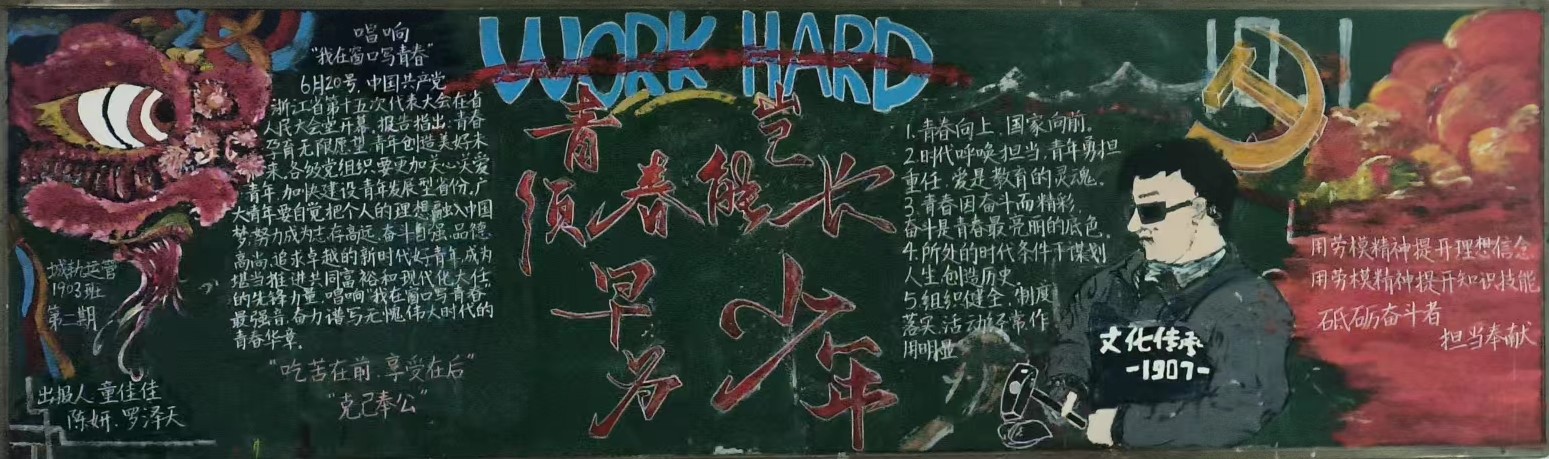 唱响
“我在窗口写青春”
6月20号，中国共产党
浙江省第十五次代表大会在省
人民大会堂开幕，报告指出，青春
孕育无限愿望，青年创造美好未
来，各级党组织要更加关心关爱
青年，加快建设青年发展型省份，广
大青年要自觉把个人的理想融入中国
梦，努力成为志存高远、奋斗自强、品德
高尚、追求卓越的新时代好青年，成为
堪当推进共同富裕和现代化大任
的先锋力量，唱响“我在窗口写青春”
最强音，奋力谱写无愧伟大时代的
青春华章。
“吃苦在前，享受在后”
“克己奉公”
城轨运管
1903班
第二期
出报人：童佳佳
陈妍、罗泽天
WORK HARD
青春岂能长少年
须早为
1.青春向上，国家向前。
2.时代呼唤担当，青年勇担
重任，爱是教育的灵魂。
3.青春因奋斗而精彩，
奋斗是青春最亮丽的底色
4.所外的时代条件下谋划
人生创造历史。
5.组织健全，制度
落实，活动经常，作
用明显
文化传承
-1907-
用劳模精神提升理想信念
用劳模精神提升知识技能
砥砺奋斗者
担当奉献